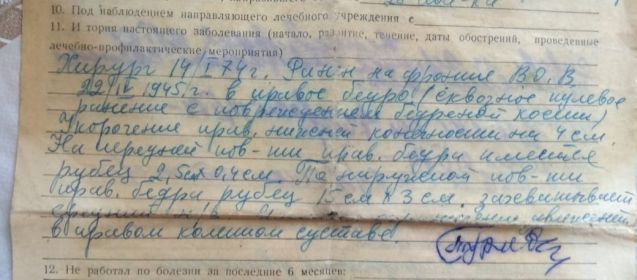 10. Под наблюдением направляющего лечебного учреждения с
11. И тория настоящего заболевания (начало, развитие, течение, даты обострений, проведенные
лечебно-профилактические мероприятия)
Хирург 14/I 74г. Ранен на фронте В.О.В.
22/IV 1945г. в правое бедро (сквозное пулевое
ранение с повреждением бедреной кости)
Укорочение прав. нижней конечности на 4 см.
На передней пов-ти прав. бедра имеется
рубец 2,5см х 0,4см. По наружной пов-ти
прав. бедра рубец 15см х 3 см.
в правом коленном суставе.
12. Не работал по болезни за последние 6 месяцев: